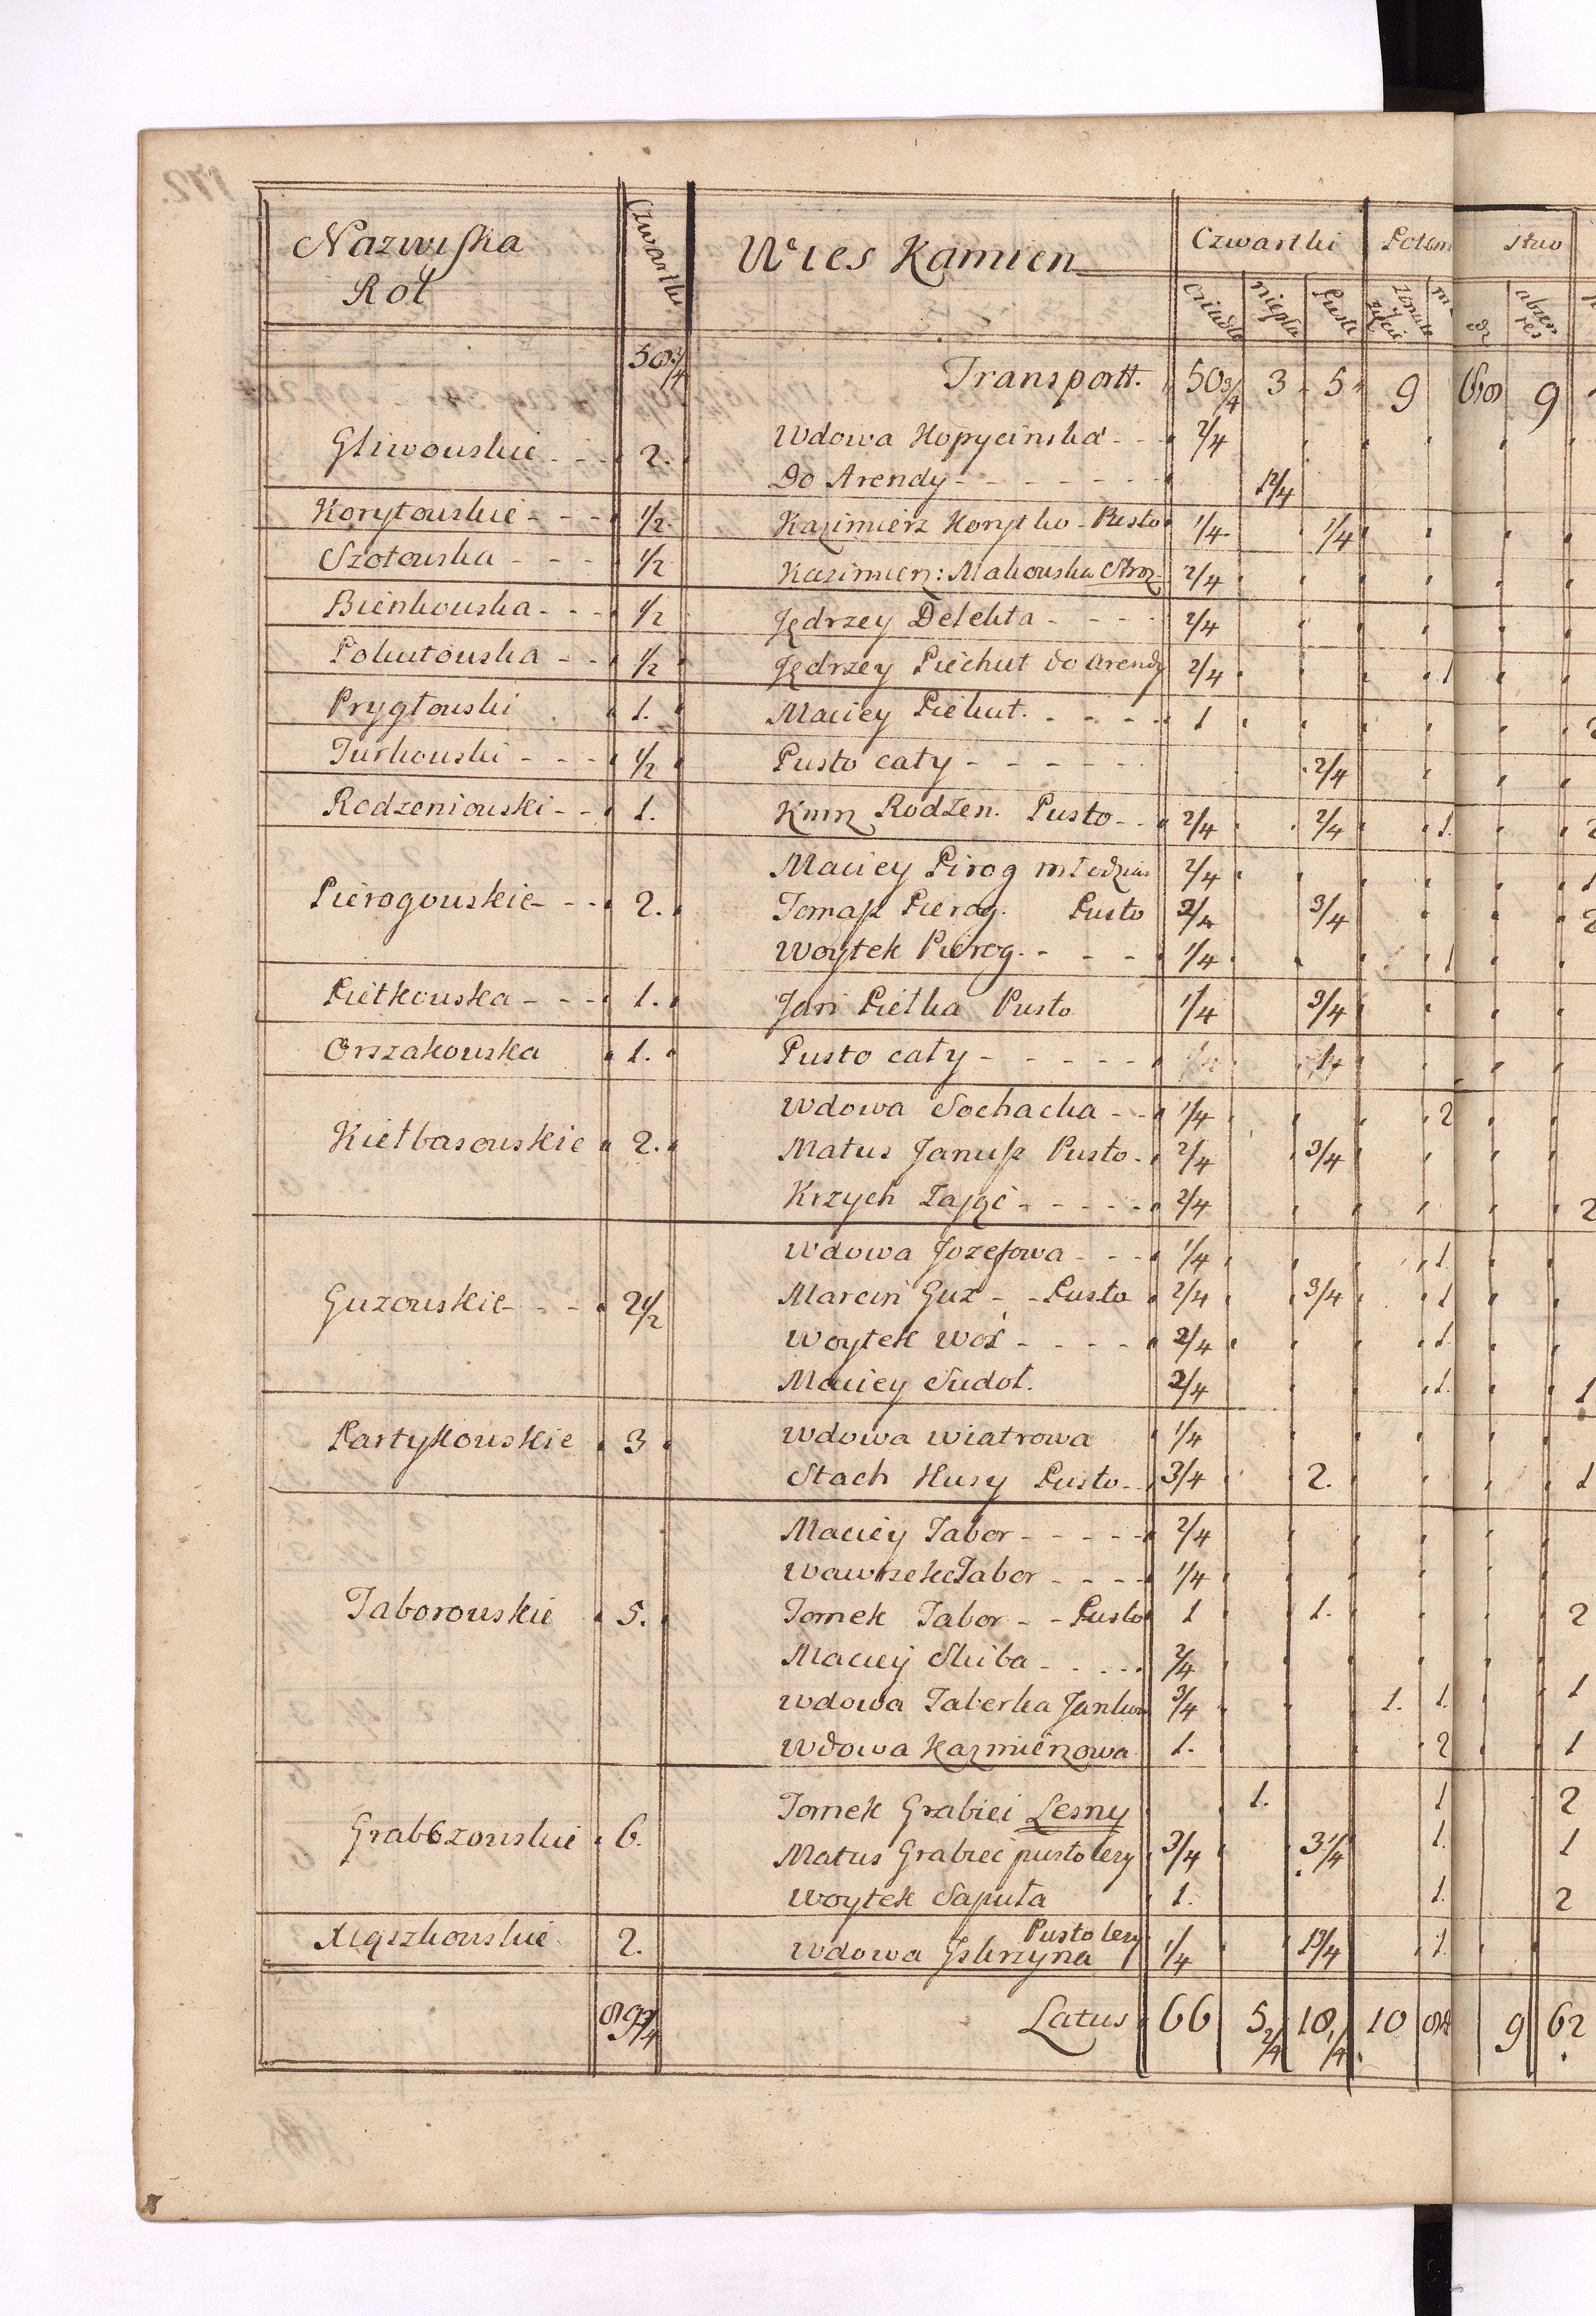 Nazwiska Rol Czwartki Wies Kamien Czwartki Potom stwo
osiadłe niepła Puste absen tes
50 3/4 Transportt. 50 3/4 3 5 9 68 9
Gliwouskie 2. Wdowa Kopycinska 2/4
Do Arendy 1 2/4
Korytouskie 1/2 Kazimierz Korytko Pusto 1/4 1/4
Szotouska 1/2 Kazimierz: Makouska 2/4
Bienkouska 1/2 Jędrzey Delekta 2/4
Pokutouska 1/2 Jędrzey Piechut do Arendy 2/4 1
Prygtouski 1. Maciey Piekut. 1
Turkouski 1/2 Pusto caty 2/4
Rodzeniouski 1. Kmn Rodzen. Pusto 2/4 2/4 1.
Maciey Pirog 2/4
Pierogouskie 2. Tomasz Pierog. Pusto 2/4 3/4
Woytek Pierog 1/4 1
Pietkouska 1. Jan Pietka Pusto 1/4 3/4
Orszakouska 1. Pusto caty
Wdowa Sochacka 1/4 2
Kietbasouskie 2. Matus Janusz Pusto 2/4 3/4
Krzych Zając 2/4 2
Wdowa Jozefowa 1/4 1.
Guzouskie 2 1/2 Marcin Guz Pusto 2/4 3/4 1
Woytek Woś 2/4 1.
Maciey Sudoł. 2/4 1. 1
Partykouskie 3 Wdowa Wiatrowa 1/4
Stach Husy Pusto 3/4 2. 1
Maciey Tabor 2/4
Wawrzek Tabor 1/4
Taborouskie 5. Tomek Tabor Pusto 1 1. 2
Maciey Skiba 2/4
Wdowa Taberka 3/4 1. 1. 1
Wdowa Kazmierzowa 1. 2 1
Tomek Grabiec Lesny 1. 1 2
Grabczouskie 6. Matus Grabiec pusto lezy 3/4 3 1/4 1. 1
Woytek Saputa 1. 1. 2
Pusto lezy
Xiąszkouskie 2. Wdowa Iskrzyna 1/4 1 3/4 1.
89 3/4 Latus 66 5 2/4 18 1/4 10 9 62